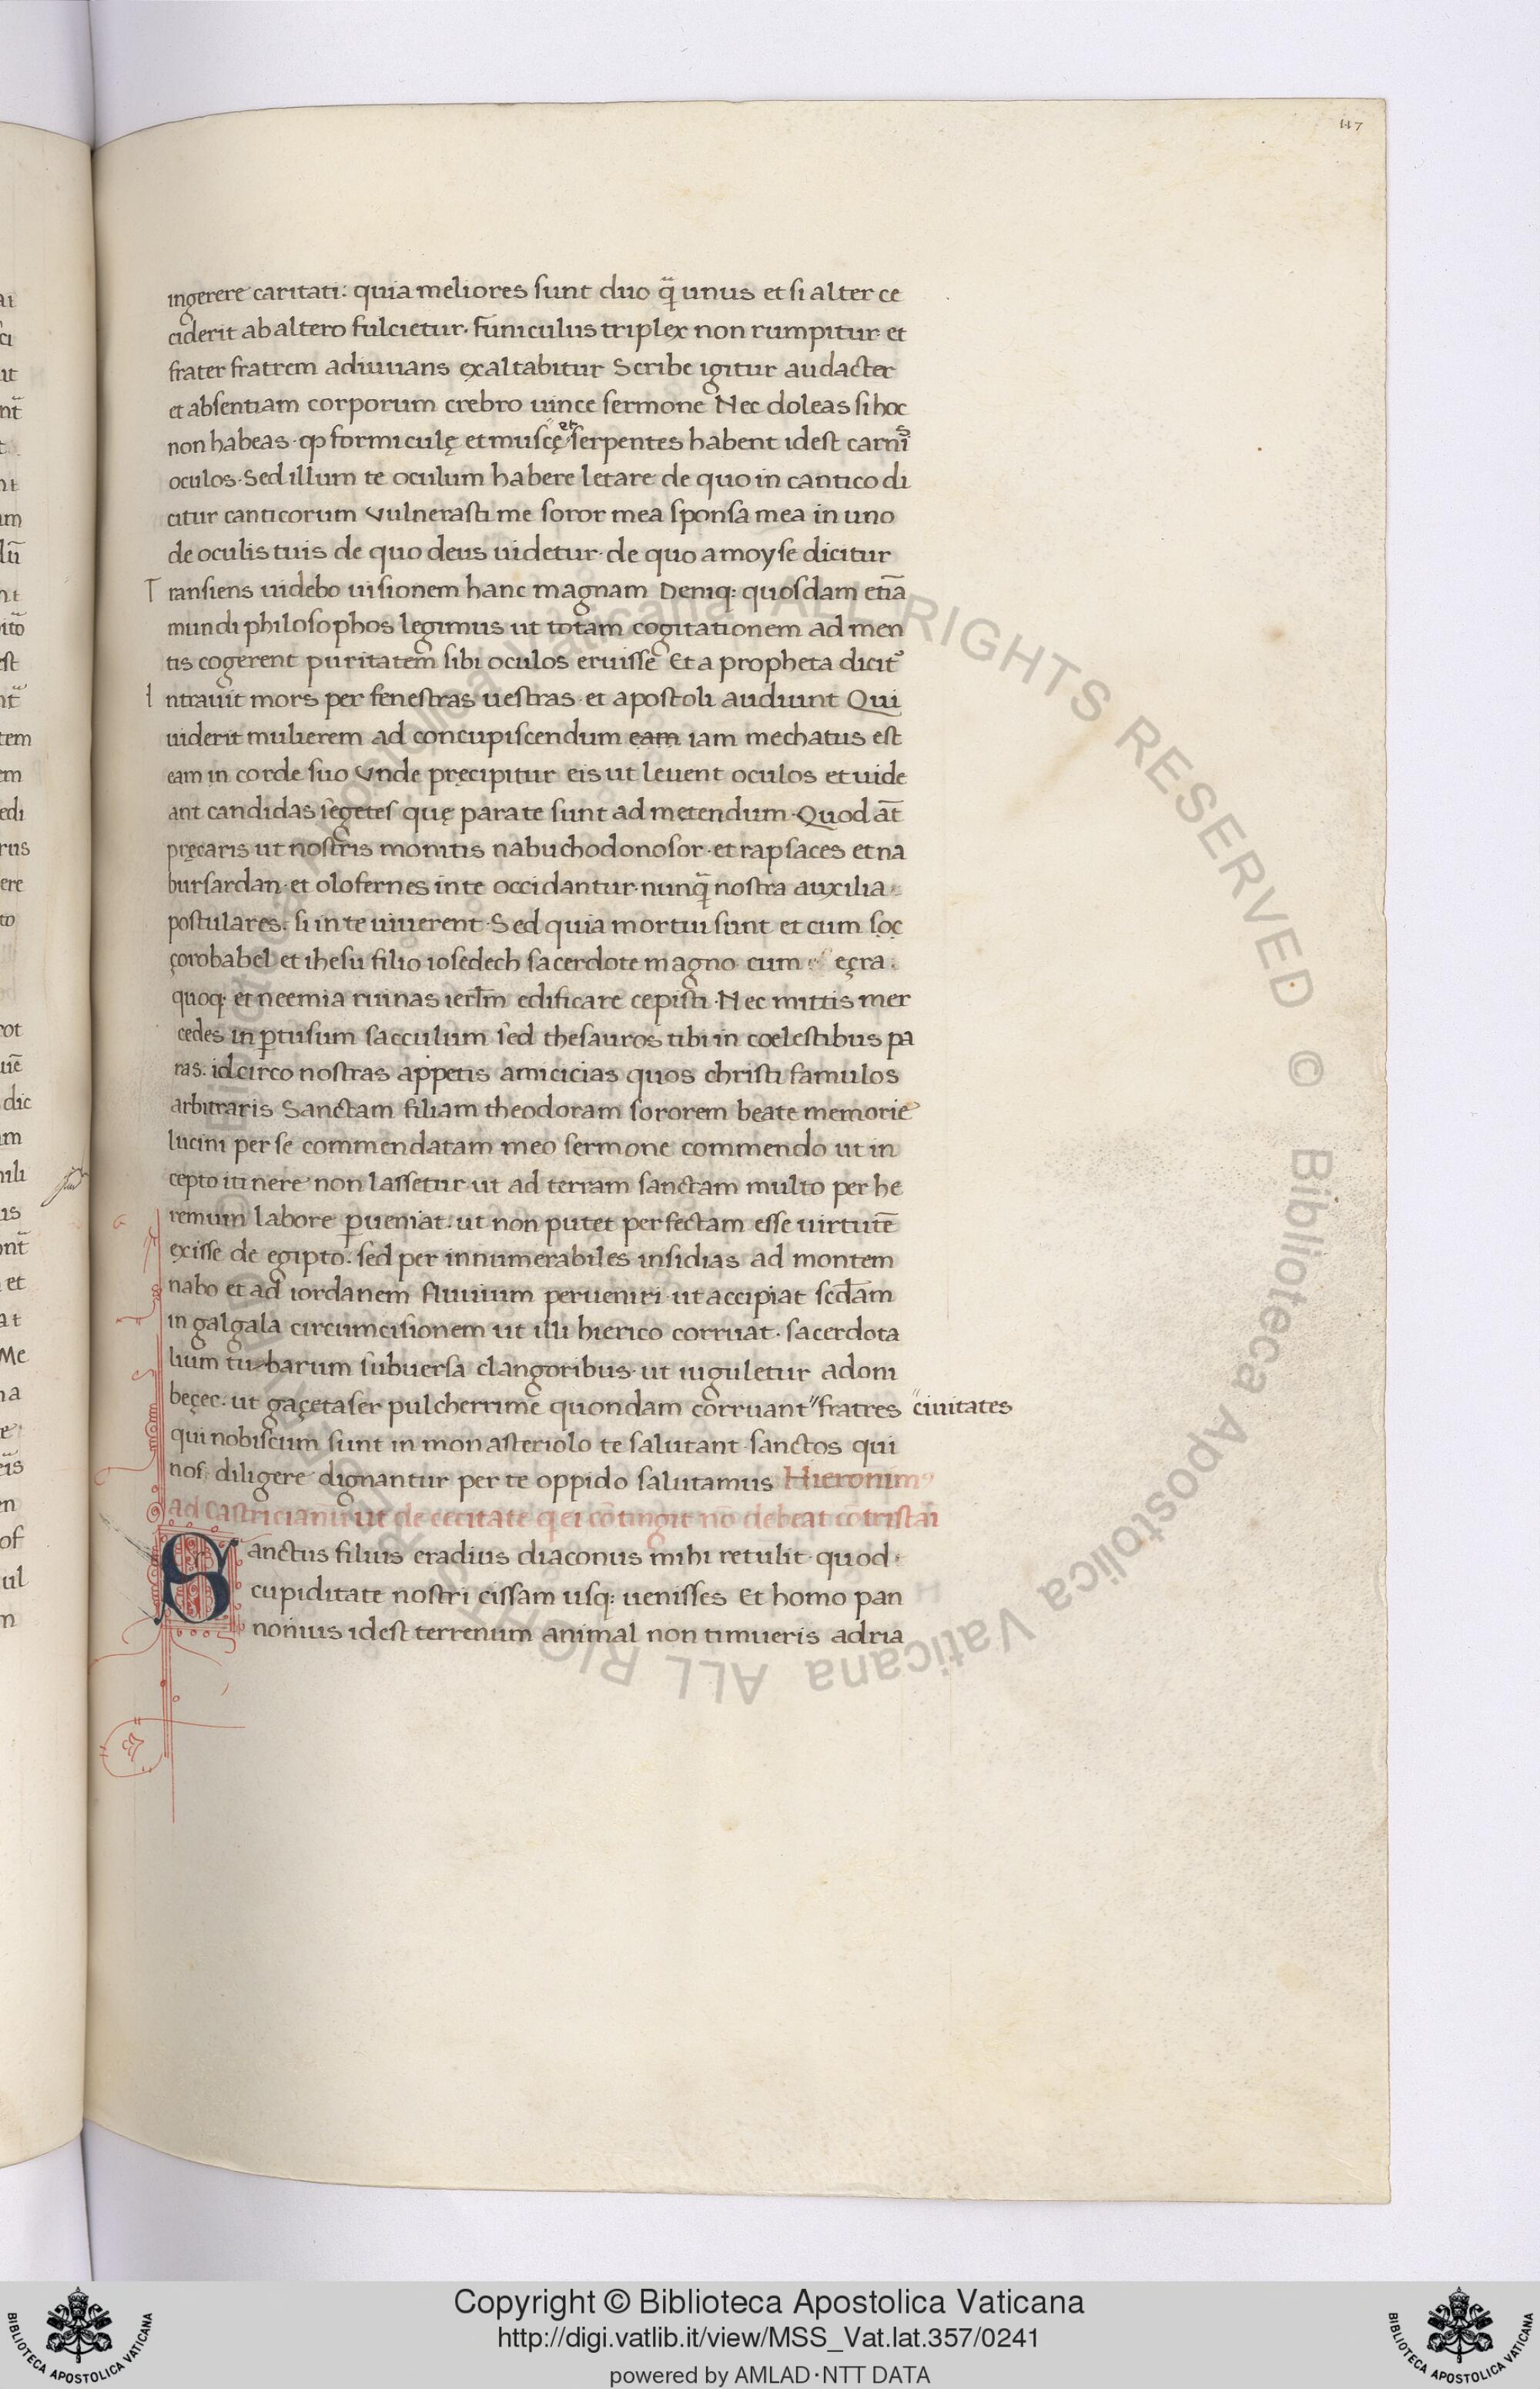 117
ingerere caritati: quia meliores sunt duo q̃ unus et si alter ce
ciderit ab altero fulcietur. funiculus triplex non rumpitur. et
frater fratrem adiuuans exaltabitur Scribe igitur audacter
et absentiam corporum crebro uince sermone Nec doleas si hoc
non habeas. qp formiculę et muscę et serpentes habent idest carnis
oculos. Sed illum te oculum habere letare de quo in cantico di
citur canticorum Vulnerasti me soror mea sponsa mea in uno
de oculis tuis de quo deus uidetur. de quo a moyse dicitur
Transiens uidebo uisionem hanc magnam Deniq: quosdam etiā
mundi philosophos legimus ut totam cogitationem ad men
tis cogerent puritatem sibi oculos eruisse Et a propheta dicit᷒
Intrauit mors per fenestras uestras. et apostoli audiunt Qui
uiderit mulierem ad concupiscendum eam iam mechatus est
eam in corde suo Vnde pręcipitur eis ut leuent oculos et uide
ant candidas segetes quę parate sunt ad metendum. Quod āt
pręcaris ut nostris monitis nabuchodonosor. et rapsaces et na
bursardan. et olofernes in te occidantur. nunq̃ nostra auxilia
postulares. si in te uiuerent. Sed quia mortui sunt et cum soç
çorobabel et ihesu filio iosedech sacerdote magno. cum eçra.
quoq: et neemia ruinas ierlm̄ edificare cepisti. Nec mittis mer
cedes in ꝑtusum sacculum sed thesauros tibi in coelestibus pa
ras. idcirco nostras appetis amicicias quos christi famulos
arbitraris Sanctam filiam theodoram sororem beate memorie
lucini per se commendatam meo sermone commendo ut in
cepto itinere non lassetur. ut ad terram sanctam multo per he
remum labore ꝑueniat. ut non putet perfectam esse uirtutē
exisse de egipto: sed per innumerabiles insidias ad montem
nabo et ad iordanem fluuium perueniri. ut accipiat sc̄dam
in galgala circumcisionem ut illi hierico corruat. sacerdota
lium tubarum subuersa clangoribus. ut iuguletur adoni
beçec. ut gaçetaser pulcherrime quondam corruant" fratres "ciuitates
qui nobiscum sunt in monasteriolo te salutant. sanctos qui
nos diligere dignantur per te oppido salutamus Hieronim᷒
ad castricianū ut de cecitate q ei cōtingit nō debeat cōtristari
Sanctus filius eradius diaconus mihi retulit. quod
cupiditate nostri cissam usq: uenisses Et homo pan
nonius idest terrenum animal non timueris adria
Copyright © Biblioteca Apostolica Vaticana
http://digi.vatlib.it/view/MSS_Vat.lat.357/0241
powered by AMLAD·NTT DATA
BIBLIOTECA APOSTOLICA VATICANA
BIBLIOTECA APOSTOLICA VATICANA